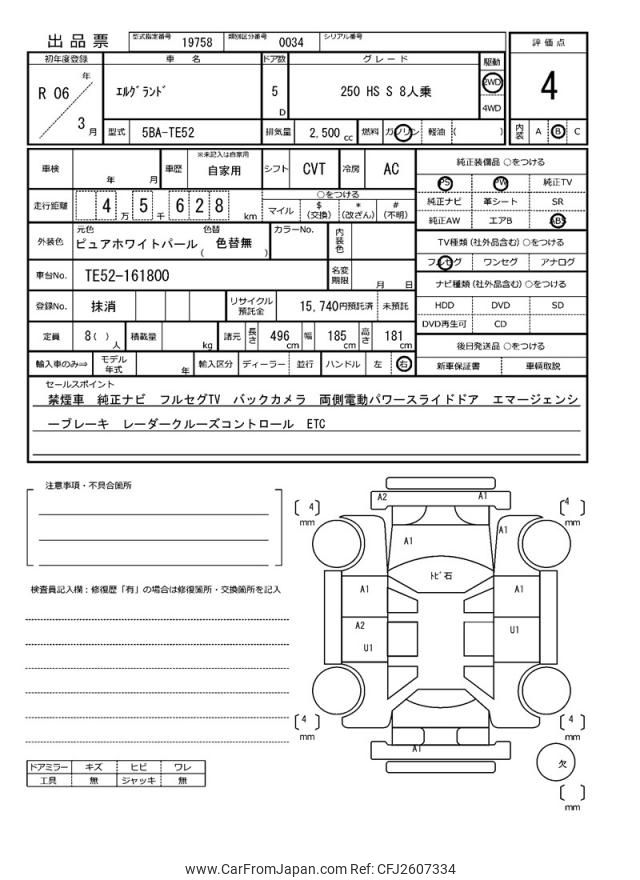 出品票 型式指定番号 19758 類別区分番号 0034 シリアル番号
評価点
初年度登録 車名 ドア数 グレード 駆動
R 06 年 エルグランド 5 D 250 HS S 8人乗 2WD 4WD 4
3 月 型式 5BA-TE52 排気量 2,500 cc 燃料 ガソリン 軽油 ( ) 内装 A B C
車検 年 月 車歴 ※未記入は自家用 自家用 シフト CVT 冷房 AC
純正装備品 ○をつける
PS PW 純正TV
純正ナビ 革シート SR
純正AW エアB ABS
走行距離 4 万 5 千 6 2 8 km
○をつける
マイル $(交換) *(改ざん) #(不明)
外装色 元色 ピュアホワイトパール 色替 ( 色替無 ) カラーNo. 内装色
TV種類 (社外品含む) ○をつける
フルセグ ワンセグ アナログ
車台No. TE52-161800 名変期限 月 日
ナビ種類 (社外品含む) ○をつける
HDD DVD SD
DVD再生可 CD
登録No. 抹消 リサイクル預託金 15,740円預託済 未預託
定員 8( ) 人 積載量 kg 諸元 長さ 496 cm 幅 185 cm 高さ 181 cm
後日発送品 ○をつける
新車保証書 車輌取説
輸入車のみ⇒ モデル年式 年 輸入区分 ディーラー 並行 ハンドル 左 右
セールスポイント
禁煙車 純正ナビ フルセグTV バックカメラ 両側電動パワースライドドア エマージェンシ
ーブレーキ レーダークルーズコントロール ETC
注意事項・不具合箇所
検査員記入欄：修復歴「有」の場合は修復箇所・交換箇所を記入
A2 A1
4 mm
4 mm
A1 A1
トビ石
A1 A1
A2
U1 U1
4 mm
4 mm
A1
欠
mm
ドアミラー キズ ヒビ ワレ
工具 無 ジャッキ 無
www.CarFromJapan.com Ref: CFJ2607334